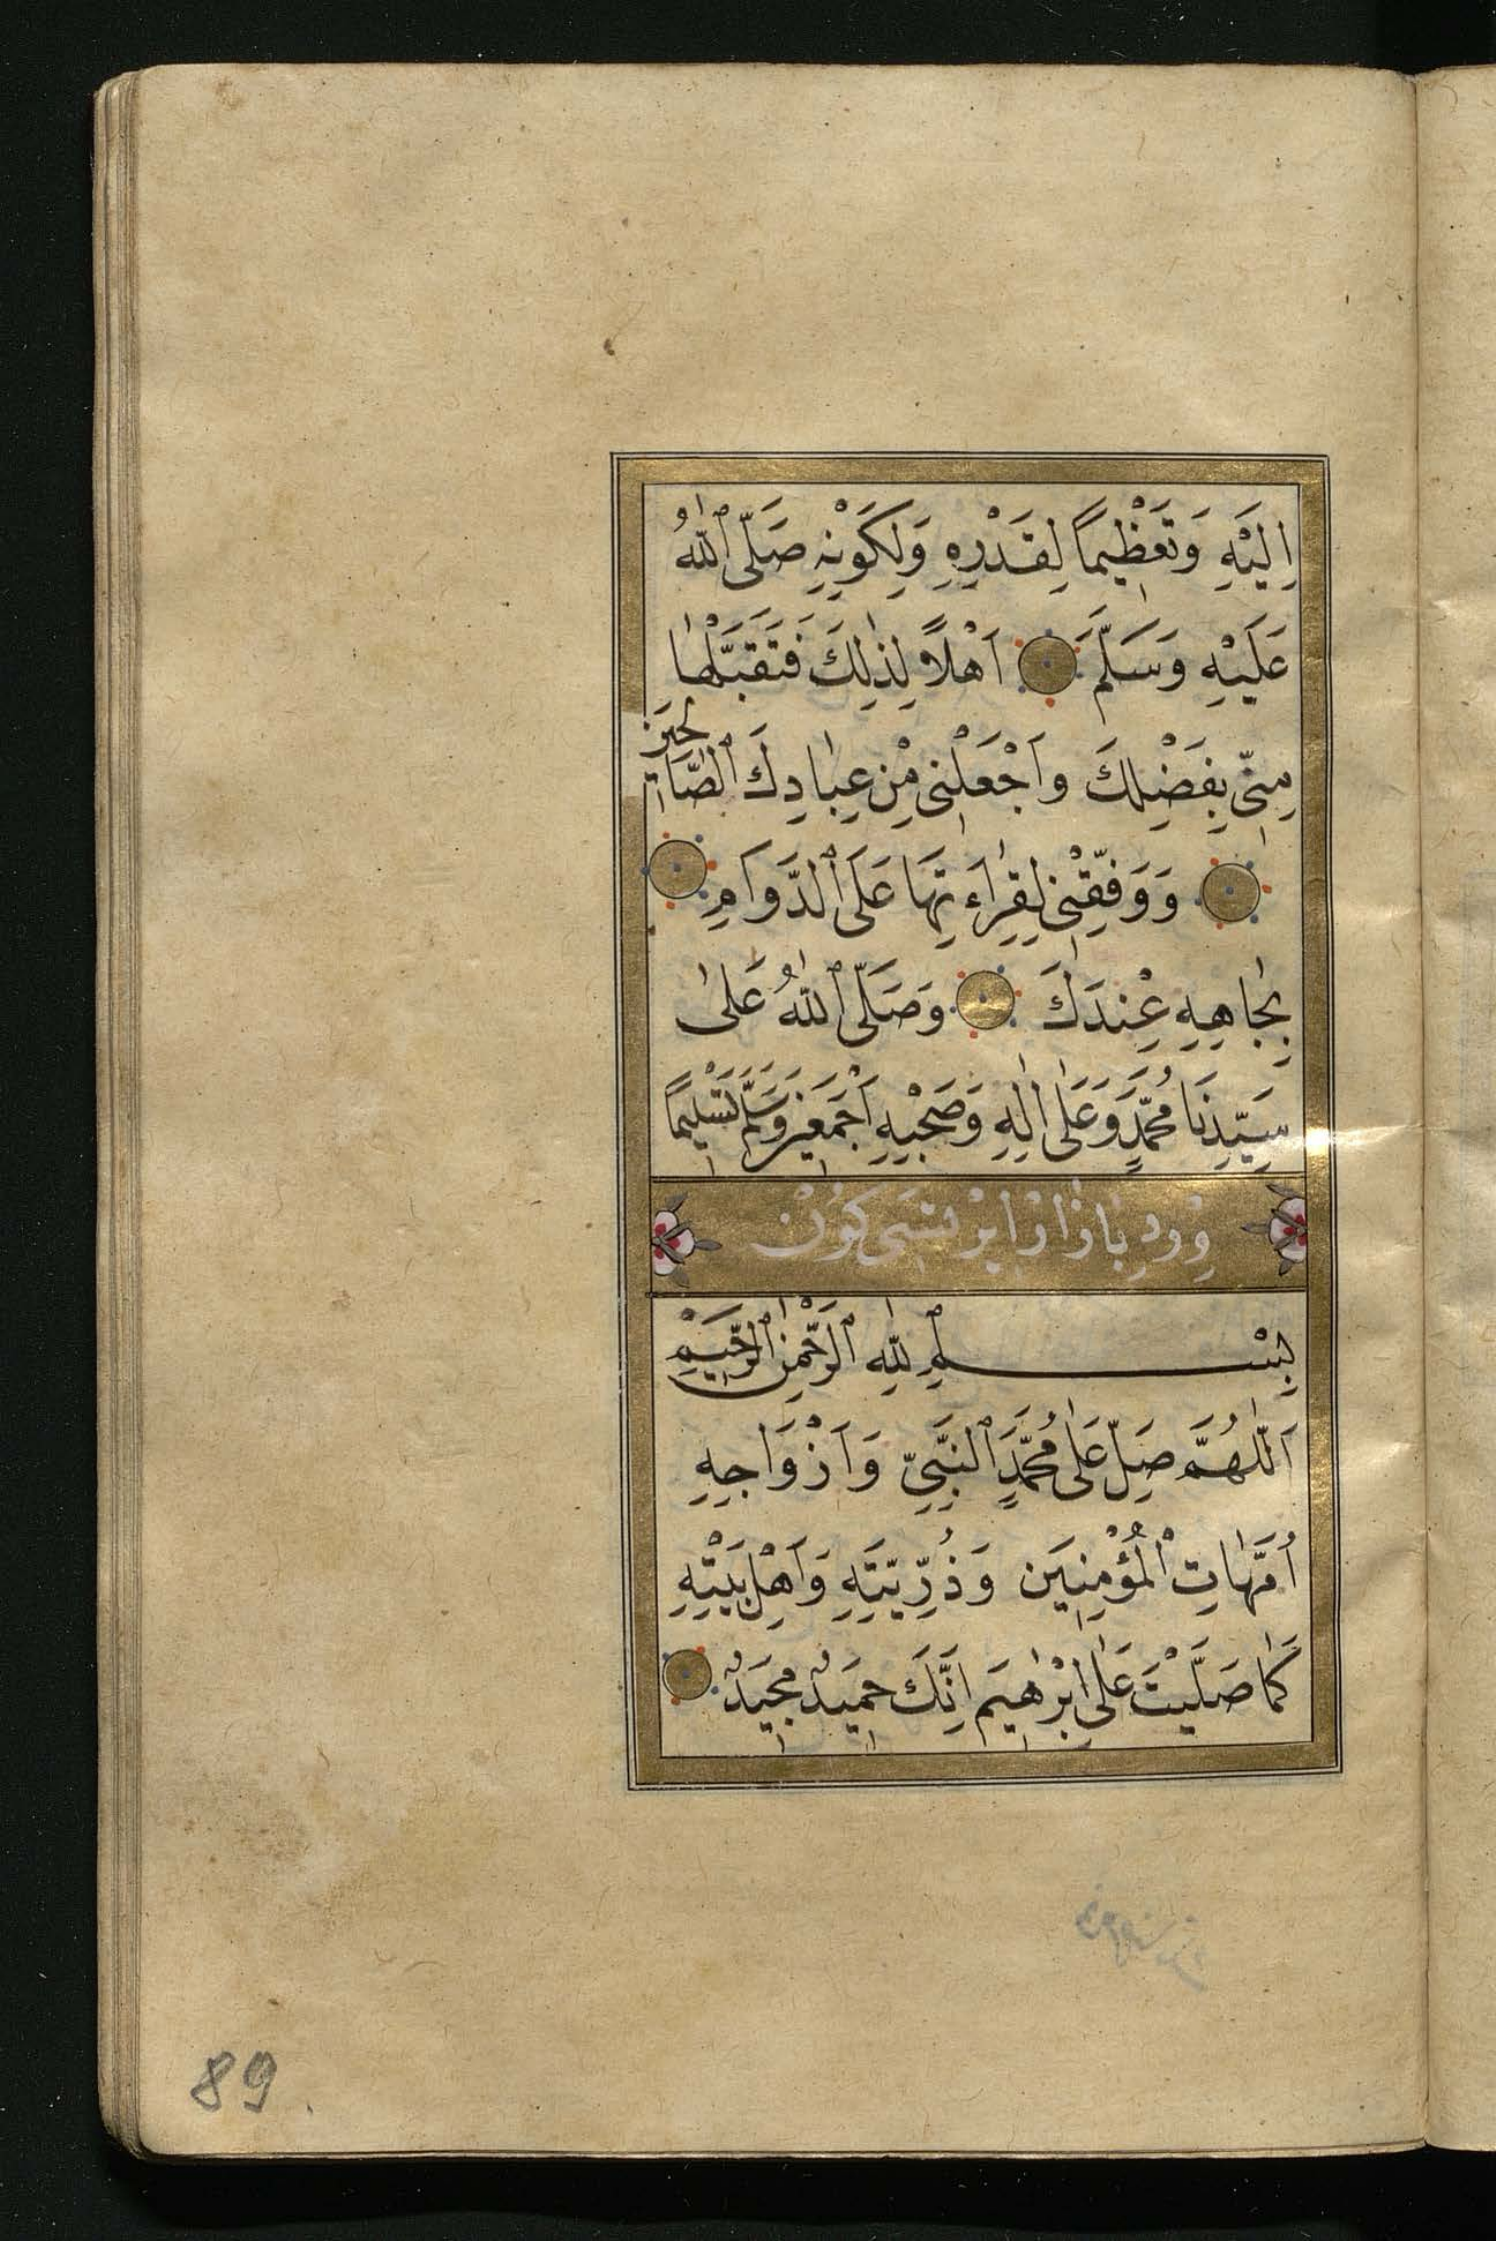 اِلَيْهِ وَتَعْظِيمًا لِقَدْرِهِ وَلِكَوْنِهِ صَلَّى ٱللّٰهُ
عَلَيْهِ وَسَلَّمَ اَهْلًا لِذٰلِكَ فَتَقَبَّلْهَا
مِنّٖي بِفَضْلِكَ وَاَجْعَلْنٖي مِنْ عِبَادِكَ ٱلصَّالِحٖينَ
وَوَفِّقْنٖي لِقِرٰاءَتِهَا عَلَى ٱلدَّوَامِ
بِجَاهِهِ عِنْدَكَ وَصَلَّى ٱللّٰهُ عَلٰى
سَيِّدِنَا مُحَمَّدٍ وَعَلٰى اٰلِهِ وَصَحْبِهِ اَجْمَعٖينَ وَسَلَّمَ تَسْلٖيمًا
وِرْدِ بَازَارْ اِيرْتَسِى كُونْ
بِسْمِ ٱللّٰهِ ٱلرَّحْمٰنِ ٱلرَّحٖيمِ
اَللّٰهُمَّ صَلِّ عَلٰى مُحَمَّدٍ ٱلنَّبِيِّ وَاَزْوَاجِهِ
اُمَّهَاتِ الْمُؤْمِنٖينَ وَذُرِّيَّتِهِ وَاَهْلِ بَيْتِهِ
كَمَا صَلَّيْتَ عَلٰى اِبْرٰهٖيمَ اِنَّكَ حَمٖيدٌ مَجٖيدٌ
89